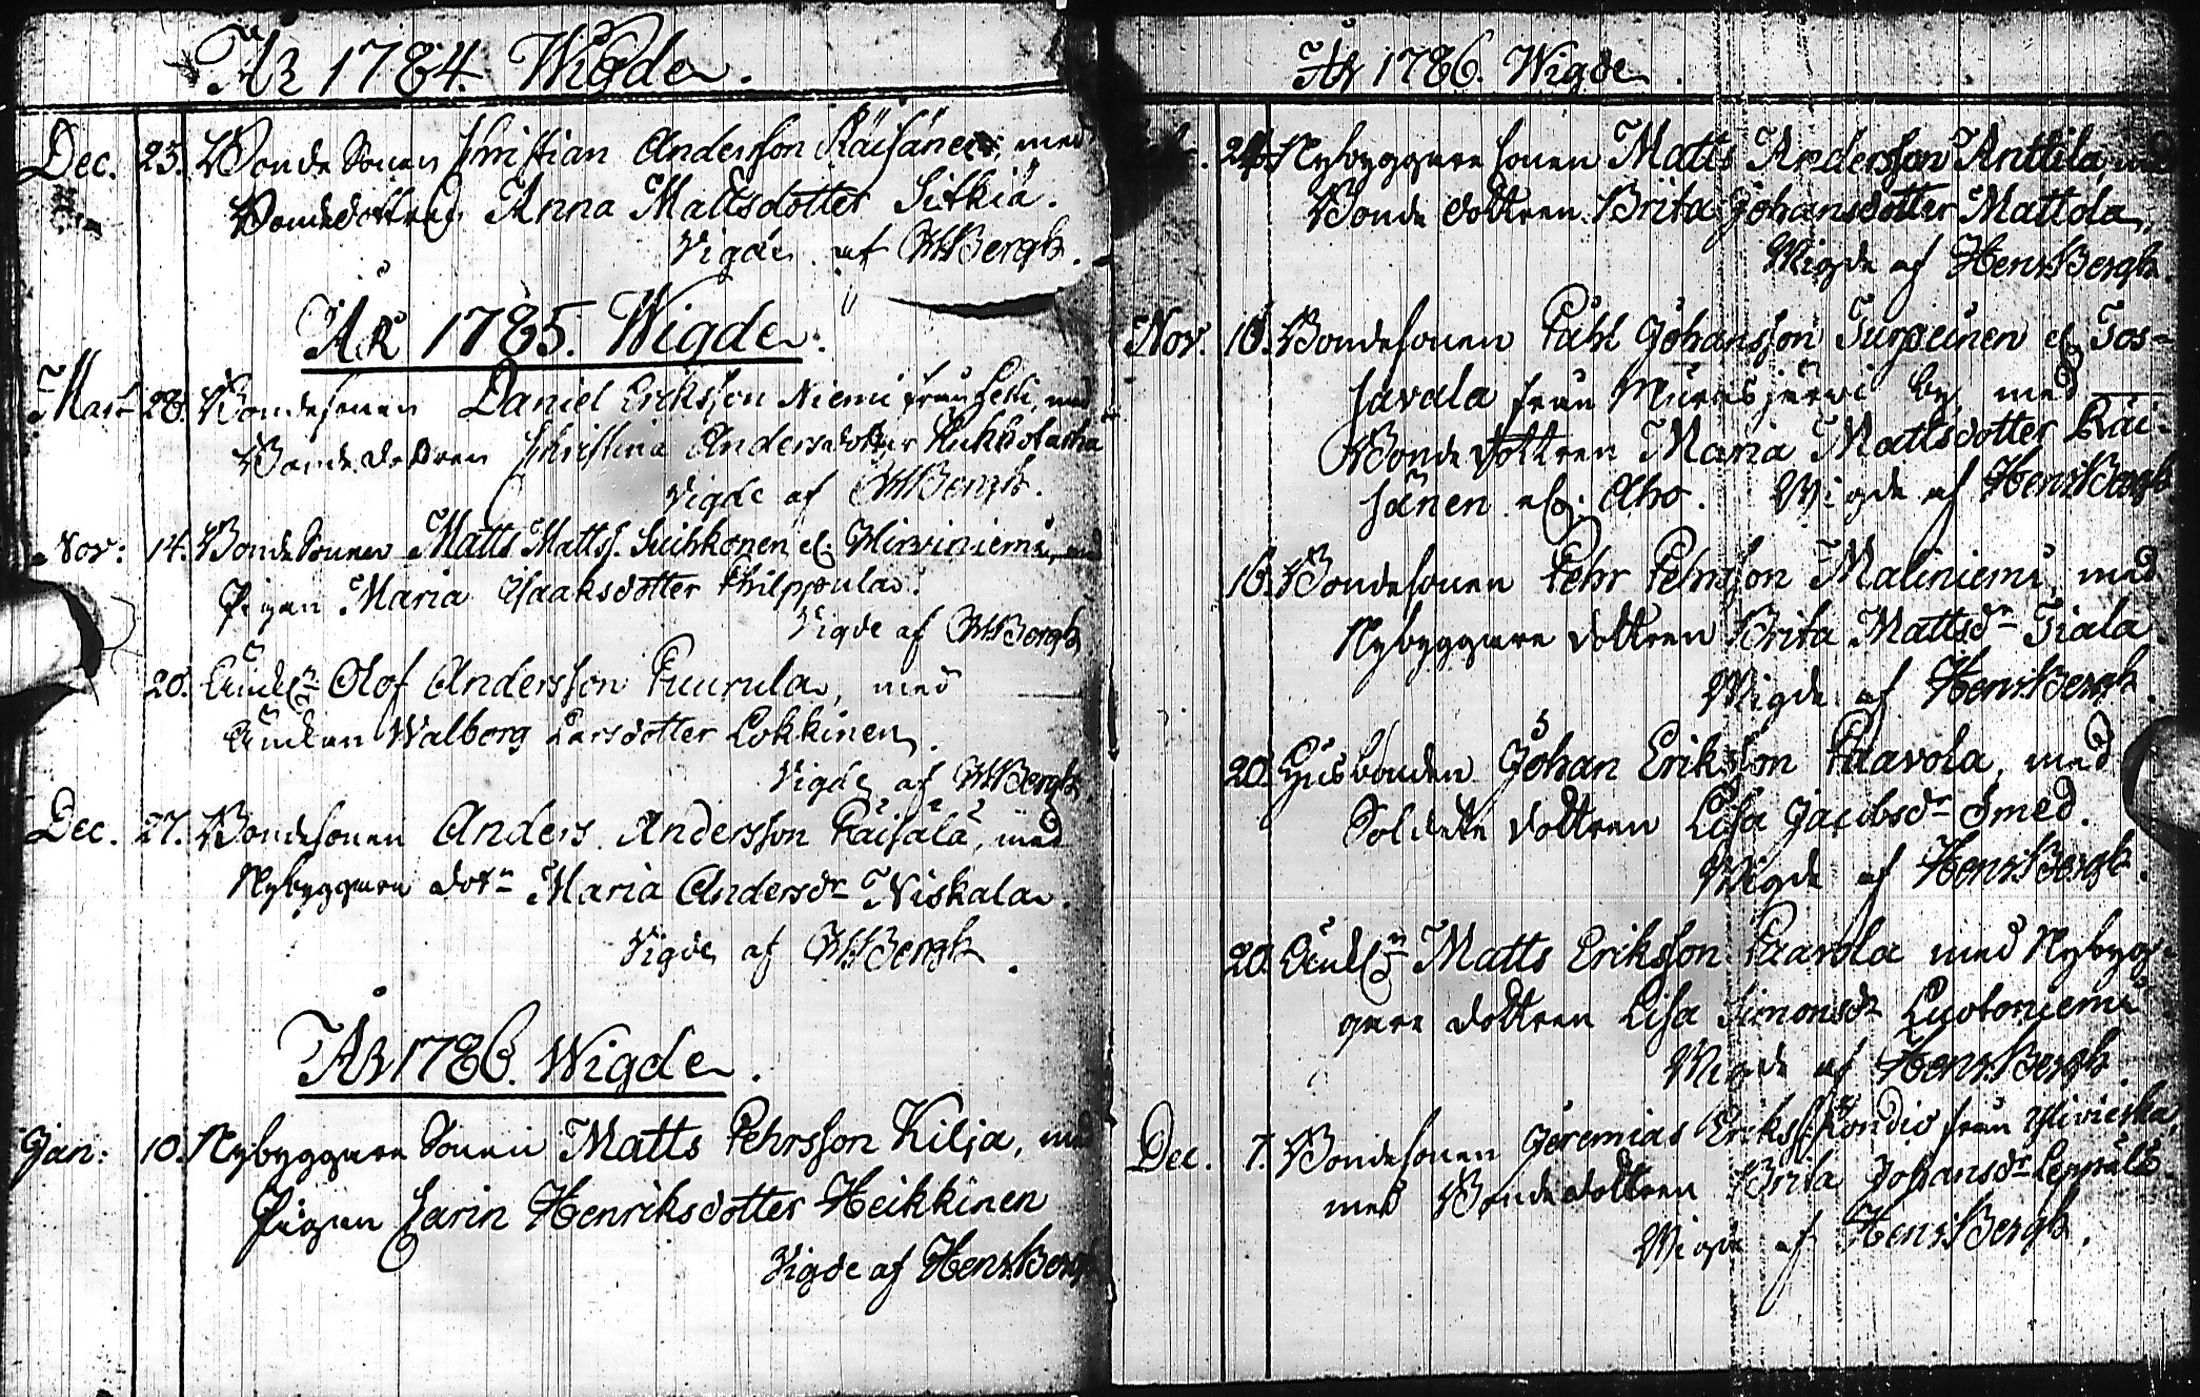 År 1784. Wigde.
Dec. 23. Bonde Sonen Christian Andersson Räisänen, med
Bondedottren Anna Mattsdotter Sitkiä.
Vigde af HBergh.
ÅR 1785. Wigde.
Mart 28. Bondesonen Daniel Eriksson Niemi från, med
Bondedottren Christina Andersdotter
Vigde af HBergh.
Nov: 14. Bonde Sonen Matts Mattss. Suihkonen el. Hirviniemi, med
Pigan Maria Isaaksdotter Philppula.
Vigde af HBergh
20. Enkl:n Olof Andersson Puurula, med
Enkan Walborg Larsdotter Lokkinen.
Vigde af HBergh
Dec. 27. Bondesonen Anders Andersson Räisälä, med
Nybyggare dot:n Maria Andersdr Niskala.
Vigde af HBergh.
ÅR 1786. Wigde.
Jan: 10. Nybyggare Sonen Matts Pehrsson Kilja, med
Pigan Carin Henriksdotter Heikkinen
Vigde af Henr.Bergh
År 1786. Wigde.
24. Nybyggare sonen Matts Andersson Anttila, med
Bonde dottren Brita Johansdotter Mattola,
Wigde af Henr.Bergh.
Nov. 16. Bondesonen Påhl Johansson Turpeinen el. Tos-
savala från Murasjärwi by, med
Bonde dottren Maria Mattsdotter Räi-
sänen el. Aho. Wigde af Henr.Bergh
16. Bondesonen Pehr Pehrsson Maliniemi, med
Nybyggare dottren Brita Mattsdr Tiala.
Wigde af Henr.Bergh.
20. Husbonden Johan Eriksson Paavola, med
Soldate dottren Lisa Jacobsdr Smed.
Wigde af Henr.Bergh.
20. Enkl:n Matts Eriksson Paavola med Nybyg-
gare dottren Lisa Simonsdr Luotoniemi
Wigde af Henr.Bergh
Dec. 7. Bondesonen Jeremias Erikss. Kondio från Ylivieska,
med Bonde dottren Brita Johansdr Leppälä.
Wigde af Henr.Bergh.